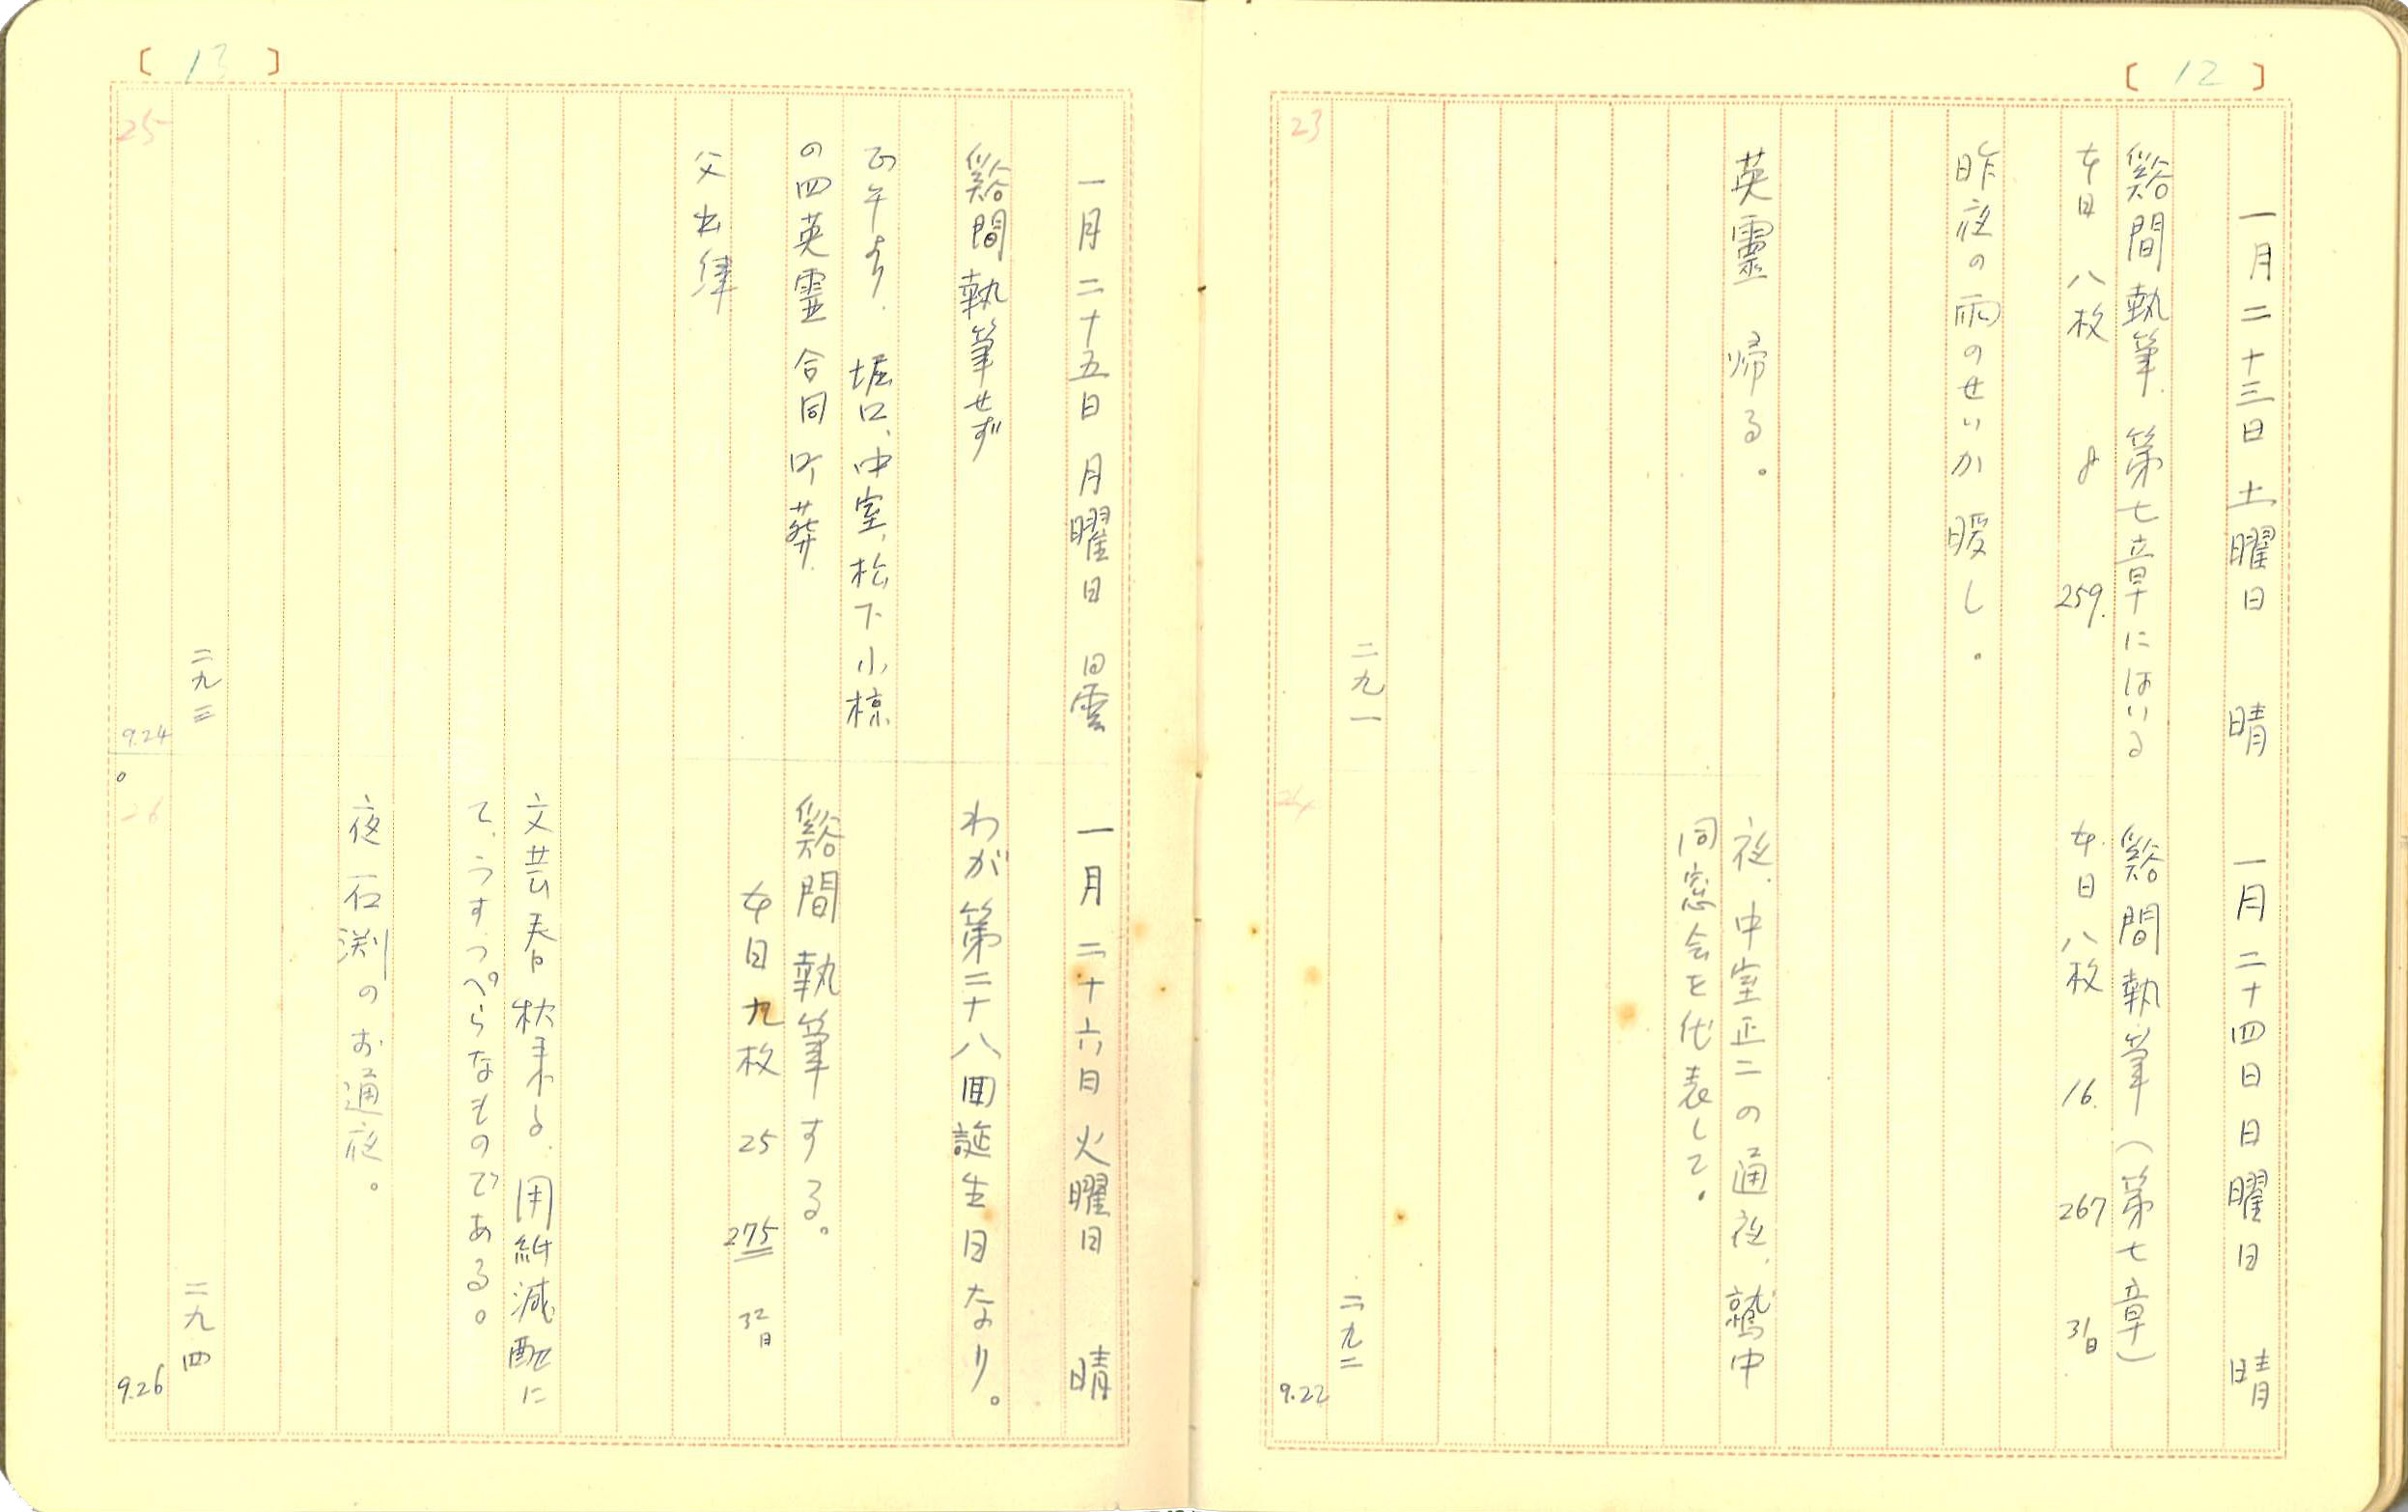 [ 12 ]
一月二十三日 土曜日 晴
谿間執筆、第七章にはいる
本日 八枚 8 259.
昨夜の雨のせいか暖し。
英靈 帰る。
二九一
23
一月二十四日 日曜日 晴
谿間執筆（第七章）
本日八枚 16. 267 31日
夜、中室正二の通夜、鵞中
同窓会を代表して。
二九二
24
9.22
[ 13 ]
一月二十五日 月曜日 曇
谿間執筆せず
正午より、堀口、中室、松下、小椋
の四英霊合同町葬、
父出津
二九三
25
9.24
一月二十六日 火曜日 晴
わが第二十八回誕生日なり。
谿間執筆する。
本日九枚 25 275 32日
文芸春秋来る、用紙減配に
て、うすっぺらなものである。
夜 石渕のお通夜。
二九四
26
9.26